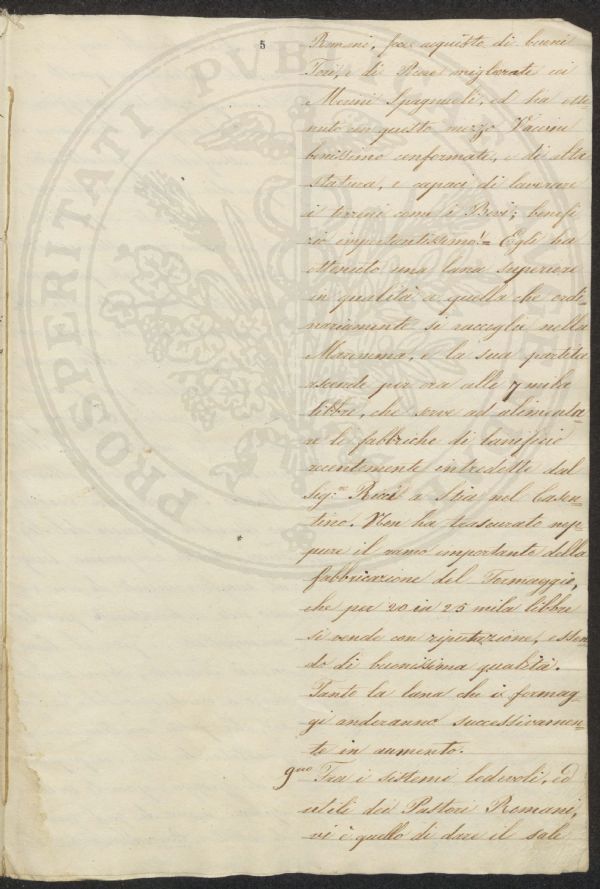 5
Romani, fece acquisto di buoni
Tori, e di Razze migliorate coi
Merini Spagnuoli, ed ha otte-
nuto con questo mezzo Vaccine
benissimo conformate, e di alta
statura, e capaci di lavorare
i terreni come i Bovi; benefi-
zio importantissimo! = Egli ha
ottenuto una lana superiore
in qualità a quella che ordi-
nariamente si raccoglie nella
Maremma, e la sua partita
ascende per ora alle 7 mila
libbre, che serve ad alimenta-
re le fabbriche di lanificio
recentemente introdotte dal
Sig.re Ricci a Stia nel Casen-
tino. Non ha trascurato nep-
pure il ramo importante della
fabbricazione del Formaggio,
che per 20 in 25 mila libbre
si vende con riputazione, essen-
do di buonissima qualità.
Tanto la lana che i formag-
gi anderanno successivamen-
te in aumento.
9no Tra i sistemi lodevoli, ed
utili dei Pastori Romani,
vi è quello di dare il sale
PROSPERITATI PVBLICAE